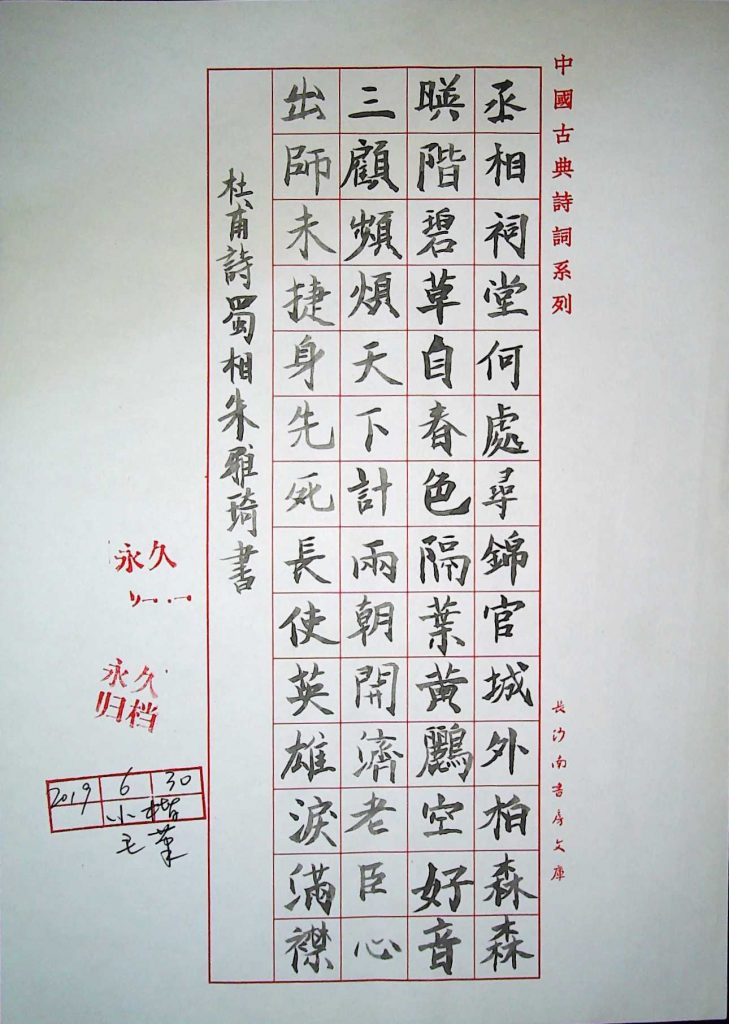 中國古典詩詞系列
丞相祠堂何處尋錦官城外柏森森
暎階碧草自春色隔葉黄鸝空好音
三顧頻煩天下計兩朝開濟老臣心
出師未捷身先死長使英雄淚滿襟
杜甫詩蜀相朱雅琦書
長沙南書房文庫
永久
永久
归档
2019 6 30
小楷
毛筆